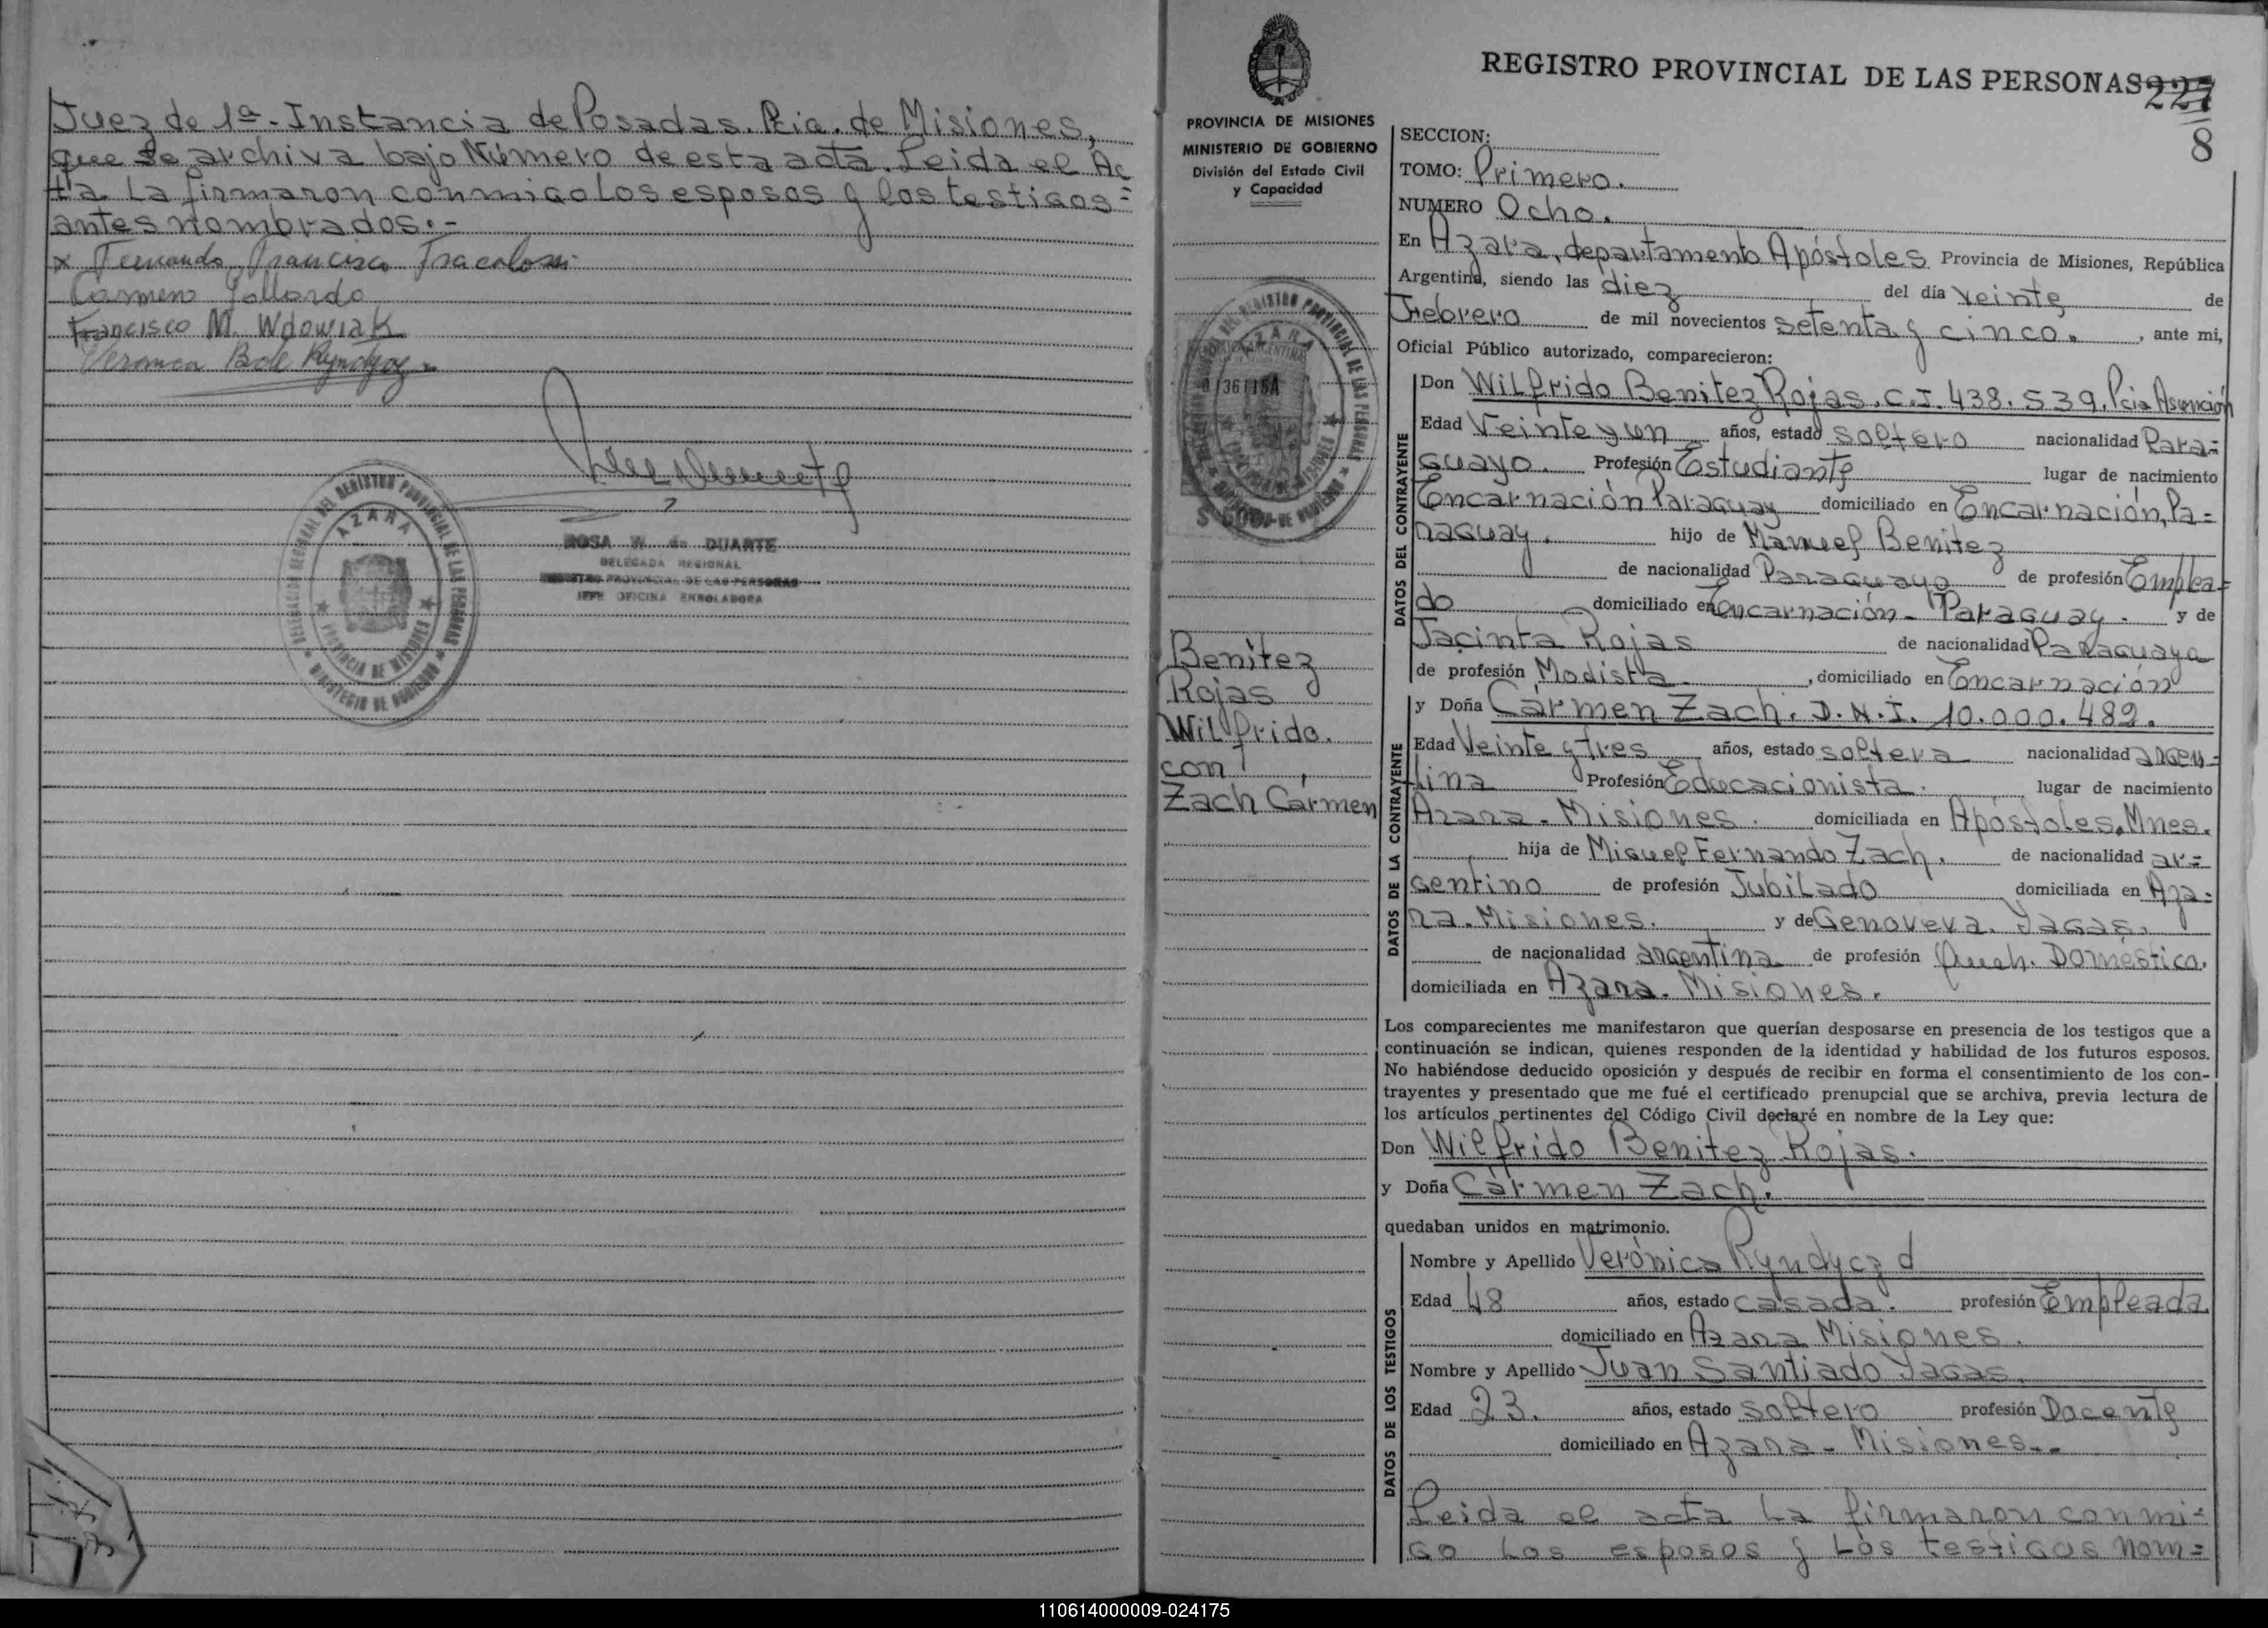 Juez de 1ª. Instancia de Posadas. Pcia. de Misiones,
que se archiva bajo Número de esta acta. Leida el Ac
ta la firmaron conmigo los esposos y los testigos=
antes nombrados.-
x Fernando Francisco Fracalossi
Carmen Gallardo
Francisco M. Wdowiak
Veronica B de Ryndycz
DELEGACION REGIONAL DEL REGISTRO PROVINCIAL DE LAS PERSONAS
AZARA
PROVINCIA DE MISIONES
MINISTERIO DE GOBIERNO
ROSA W. de DUARTE
DELEGADA REGIONAL
REGISTRO PROVINCIAL DE LAS PERSONAS
JEFE OFICINA ENROLADORA
PROVINCIA DE MISIONES
MINISTERIO DE GOBIERNO
División del Estado Civil
y Capacidad
Benitez
Rojas
Wilfrido.
con
Zach Cármen
REGISTRO PROVINCIAL DE LAS PERSONAS 227
8
SECCION:
TOMO: Primero.
NUMERO Ocho.
En Azara, departamento Apóstoles Provincia de Misiones, República
Argentina, siendo las diez del día veinte de
Febrero de mil novecientos setenta y cinco. , ante mi,
Oficial Público autorizado, comparecieron:
DATOS DEL CONTRAYENTE
Don Wilfrido Benitez Rojas. C.I. 438.539. Pcia Asunción
Edad Veinte y un años, estado soltero nacionalidad Para=
guayo. Profesión Estudiante lugar de nacimiento
Encarnación Paraguay domiciliado en Encarnación, Pa=
raguay. hijo de Manuel Benitez
de nacionalidad Paraguayo de profesión Emplea=
do domiciliado en Encarnación - Paraguay. y de
Jacinta Rojas de nacionalidad Paraguaya
de profesión Modista , domiciliado en Encarnación
DATOS DE LA CONTRAYENTE
y Doña Cármen Zach. D.N.I. 10.000.482.
Edad Veinte y tres años, estado soltera nacionalidad argen=
tina Profesión Educacionista. lugar de nacimiento
Azara - Misiones. domiciliada en Apóstoles, Mnes.
hija de Miguel Fernando Zach. de nacionalidad ar=
gentino de profesión Jubilado domiciliada en Aza=
ra. Misiones. y de Genoveva Yagas.
de nacionalidad argentina de profesión Queh. Doméstico.
domiciliada en Azara. Misiones.
Los comparecientes me manifestaron que querían desposarse en presencia de los testigos que a
continuación se indican, quienes responden de la identidad y habilidad de los futuros esposos.
No habiéndose deducido oposición y después de recibir en forma el consentimiento de los con-
trayentes y presentado que me fué el certificado prenupcial que se archiva, previa lectura de
los artículos pertinentes del Código Civil declaré en nombre de la Ley que:
Don Wilfrido Benitez Rojas.
y Doña Cármen Zach.
quedaban unidos en matrimonio.
DATOS DE LOS TESTIGOS
Nombre y Apellido Verónica Ryndycz d
Edad 48 años, estado casada. profesión Empleada
domiciliado en Azara Misiones.
Nombre y Apellido Juan Santiado Yagas.
Edad 23. años, estado soltero profesión Docente
domiciliado en Azara - Misiones..
Leida el acta la firmaron conmi=
go los esposos y los testigos nom=
110614000009-024175